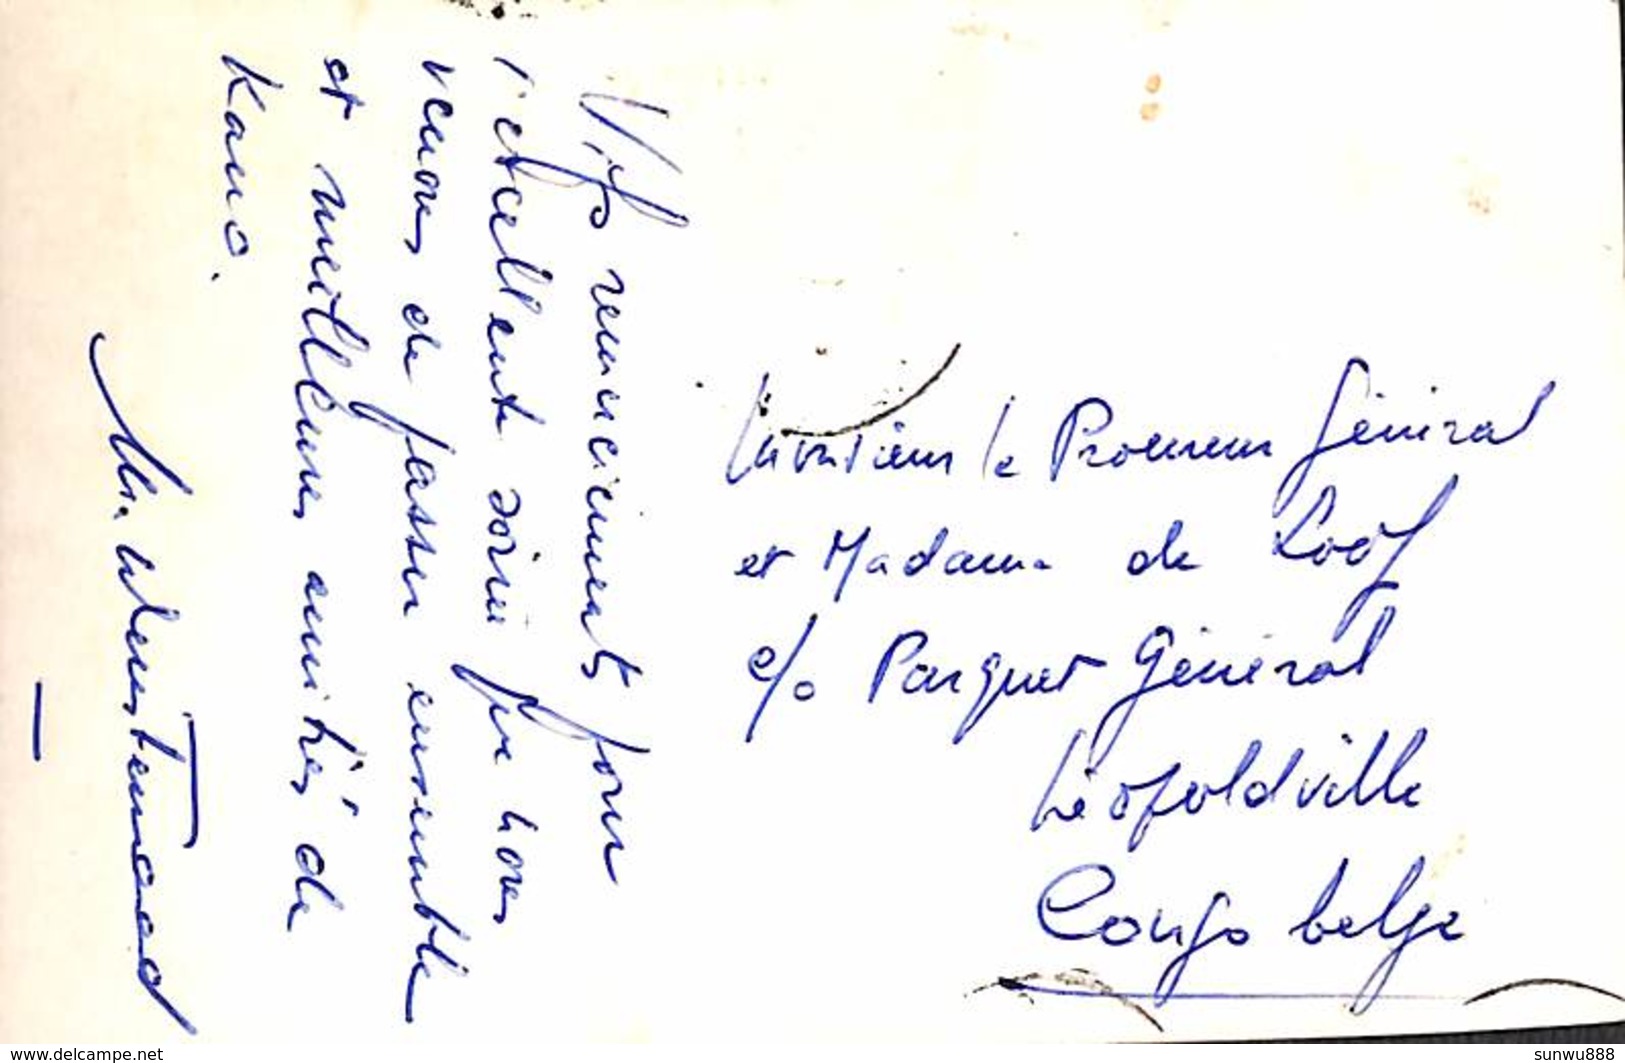 Vifs remerciements pour
l'excellente soirée que nous
venons de passer ensemble
et meilleures amitiés de
Kano.
Monsieur le Procureur Général
et Madame de Loof
c/o Parquet Général
Léopoldville
Congo belge
www.delcampe.net
sunwu888